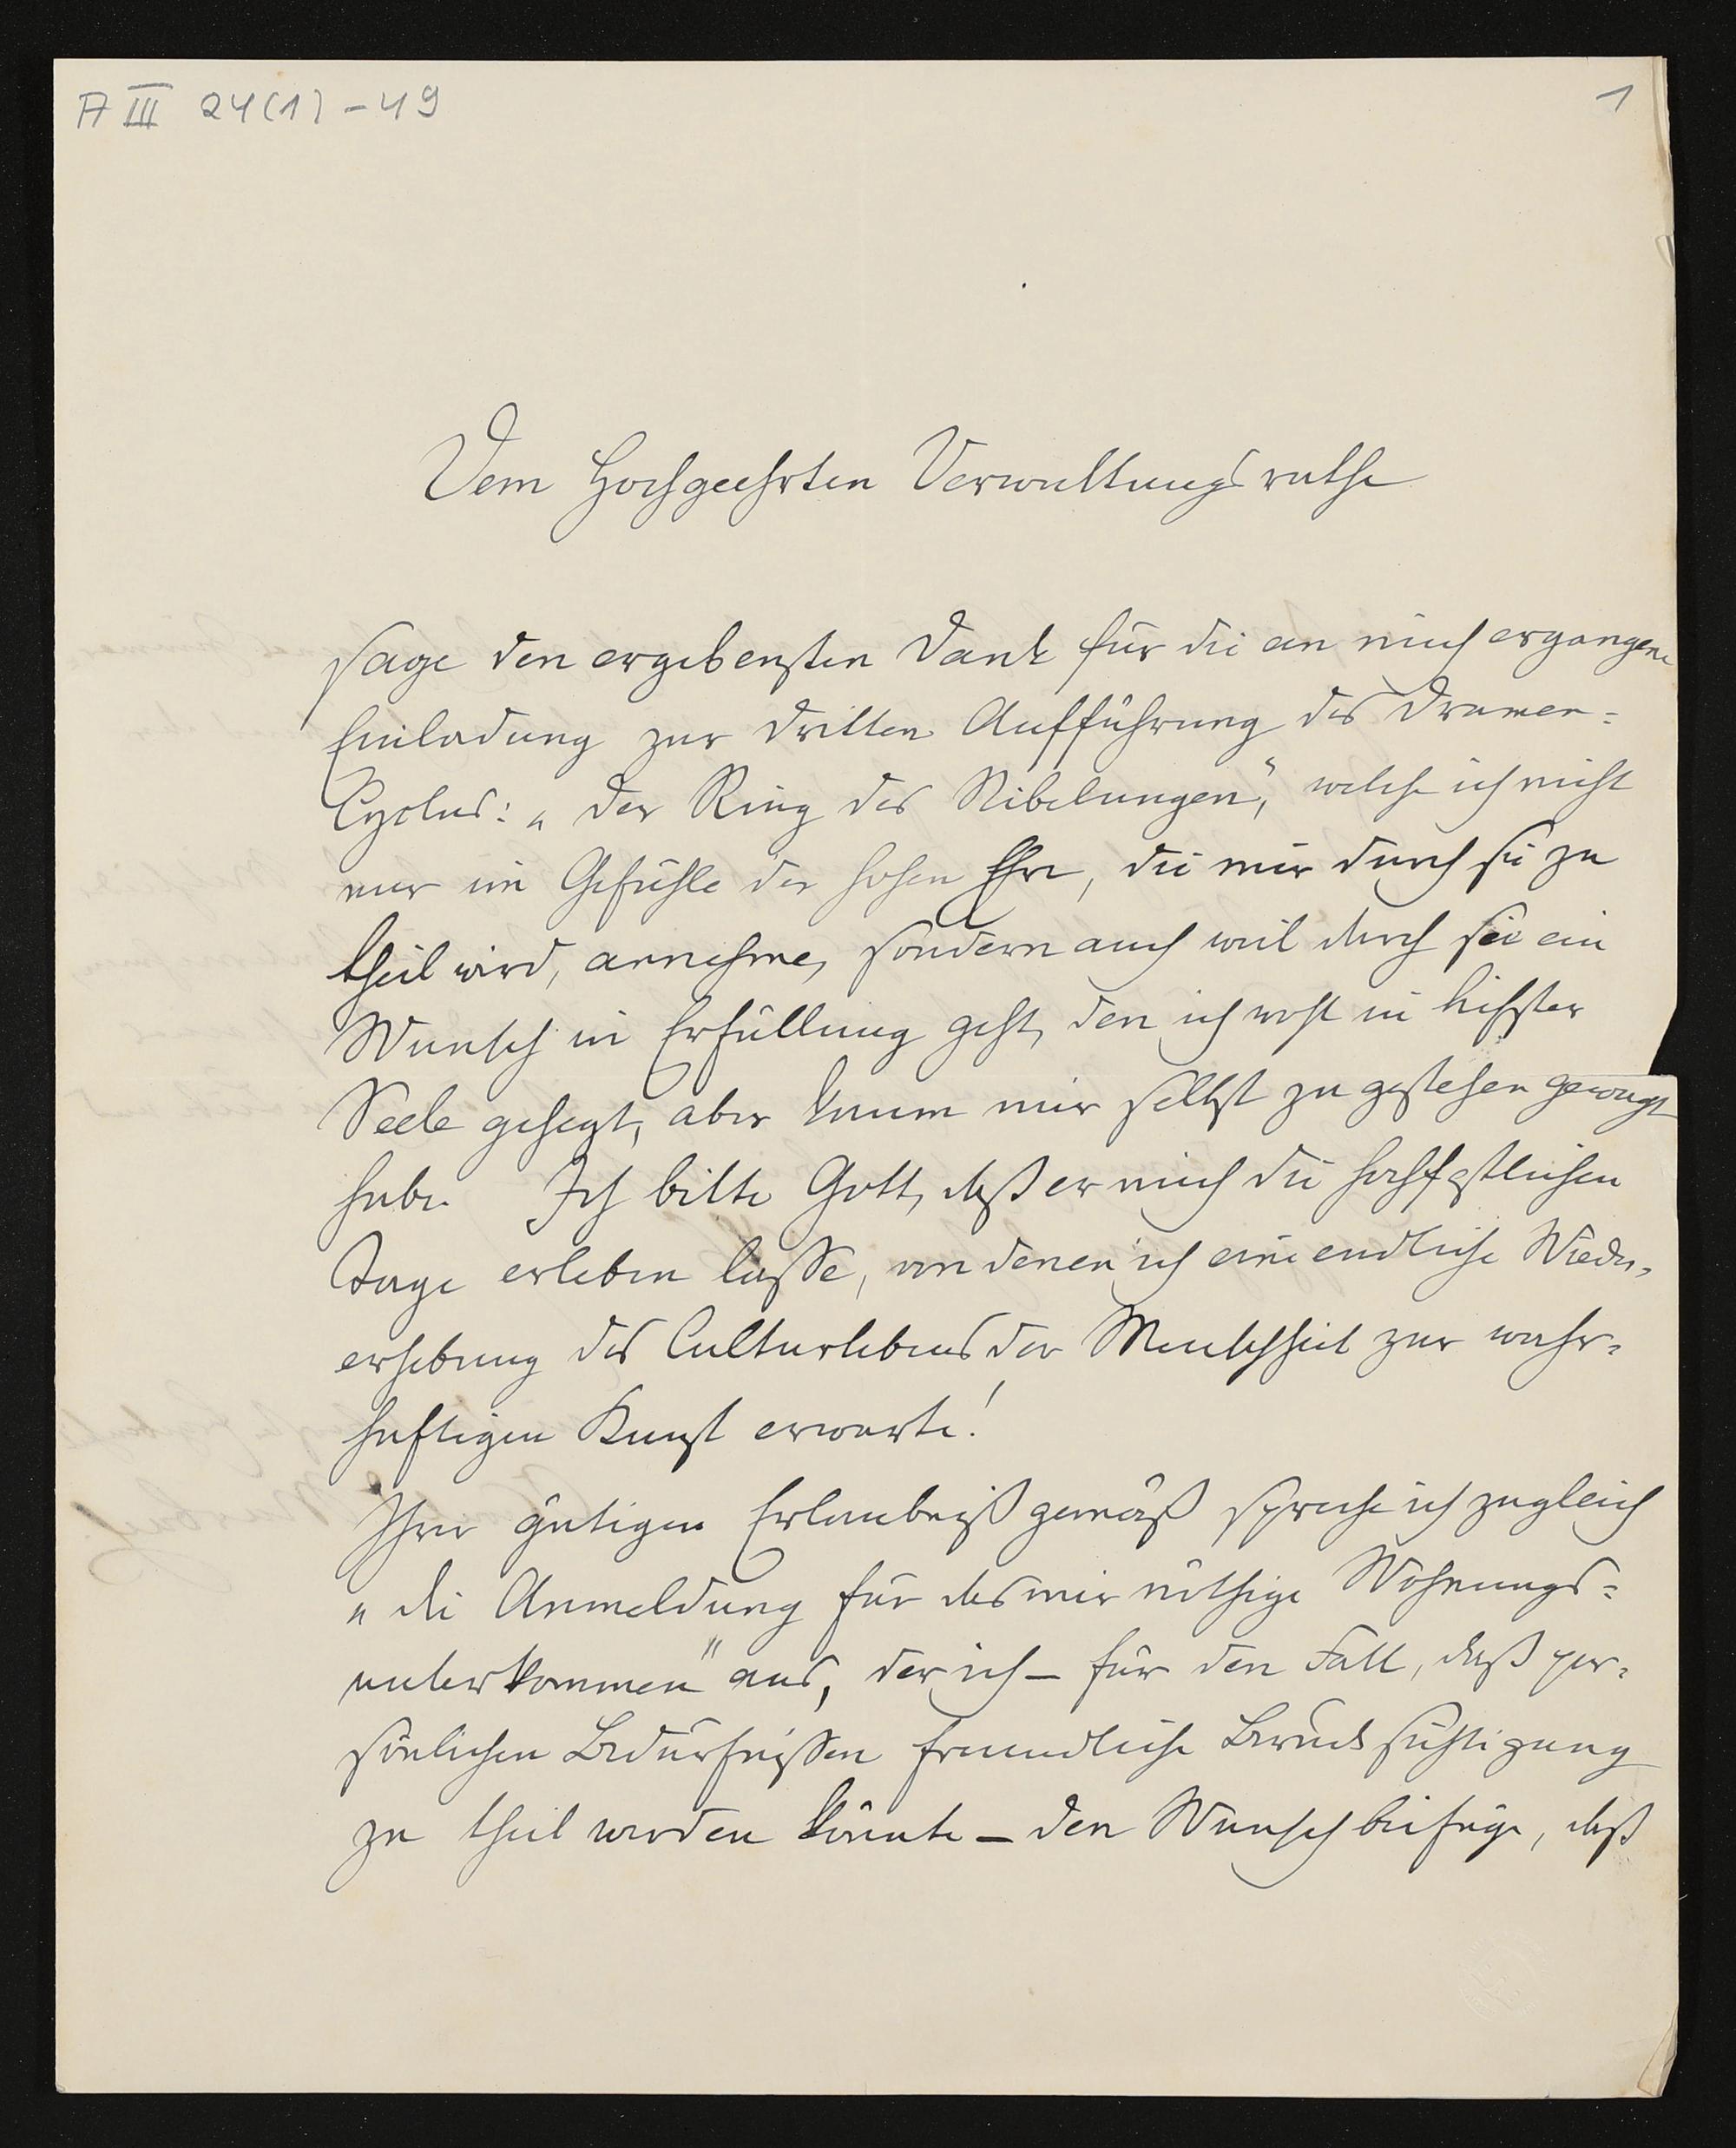 A III 24(1) - 49
1
Dem Hochgeehrten Verwaltungsrathe
sage den ergebensten Dank für die an mich ergangene
Einladung zur dritten Aufführung des Dramen=
Cyclus: „Der Ring des Nibelungen“, welche ich nicht
nur im Gefühle der hohen Ehre, die mir durch sie zu
theil wird, annehme, sondern auch weil durch sie ein
Wunsch in Erfüllung geht, den ich wohl in tiefster
Seele gehegt, aber kaum mir selbst zu gestehen gewagt
habe. Ich bitte Gott, daß er mich die hochfestlichen
Tage erleben lasse, von denen ich eine endliche Wieder=
erhebung des Culturlebens der Menschheit zur wahr=
haftigen Kunst erwarte!
Ihrer gütigen Erlaubniß gemäß spreche ich zugleich
„die Anmeldung für das mir nöthige Wohnungs=
unterkommen“ aus, der ich – für den Fall, daß per=
sönlichen Bedürfnissen freundliche Berücksichtigung
zu theil werden könnte – den Wunsch beifüge, daß